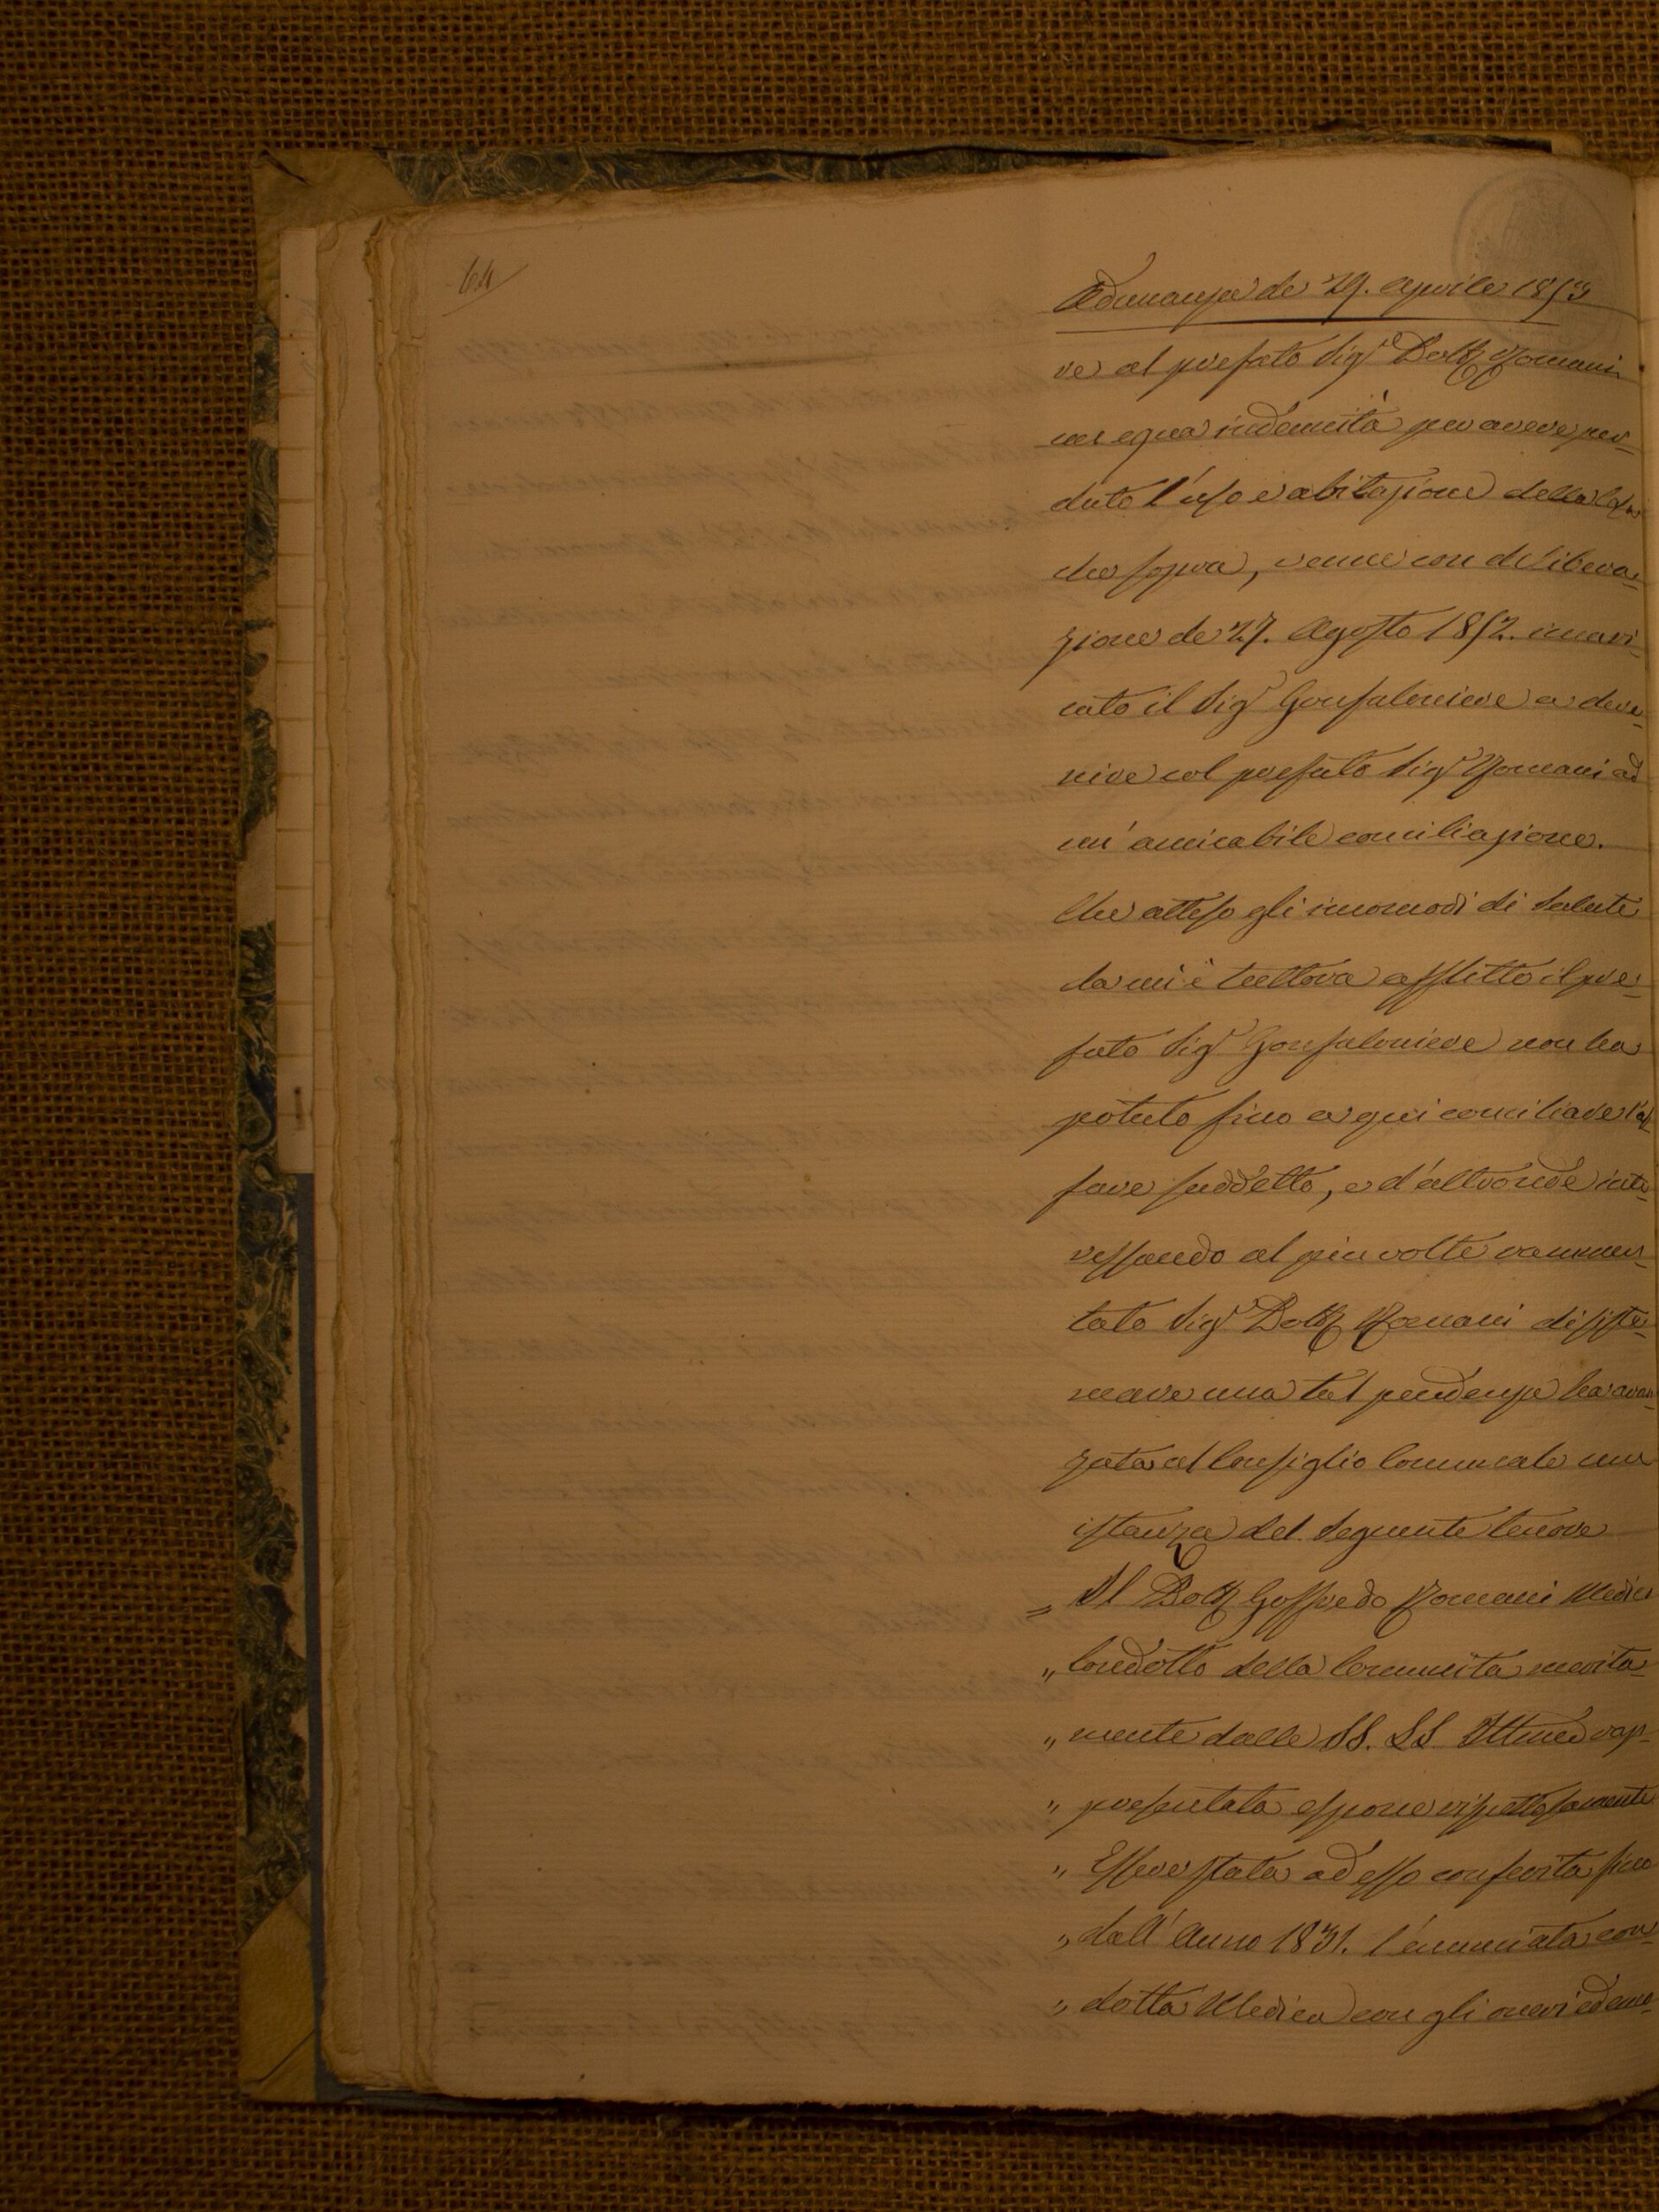 64
Adunanza de 29. Aprile 1853
re al prefato Sigr. Dottr Romani
un equa indennità per avere per=
duto l'uso e abitazione della Casa
che sopra, venne con delibera=
zione de 27. Agosto 1852. incari=
cato il Sigr Gonfaloniere a deve=
nire col prefato Sigr Romani ad
un' amicabile conciliazione.
Che atteso gli incomodi di Salute
da cui è tuttora afflitto il pre=
fato Sigr Gonfaloniere non ha
potuto fino a qui conciliare l'af=
fare suddetto, e d'altronde inte=
ressando al più volte rammen=
tato Sigr Dottr Romani di siste=
mare una tal pendenza ha avan=
zata al Consiglio Comunale una
istanza del seguente tenore
= Il Dottr Goffredo Romani Medico
" Condotto della Comunità merita=
" mente dalle SS. LL. Illme rap=
" presentata espone rispettosamente
" Essere stata ad esso conferita fino
" dall'Anno 1831. l'enunciata con=
" dotta Medica con gli oneri ed emo=